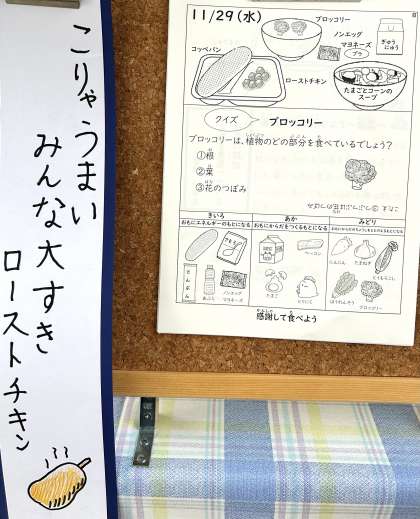 こりゃうまい
みんな大すき
ローストチキン
11/29(水)
ブロッコリー
ノンエッグ
マヨネーズ
ぎゅうにゅう
コッペパン
ローストチキン
たまごとコーンの
スープ
クイズ
ブロッコリー
ブロッコリーは、植物のどの部分を食べているでしょう?
①根
②葉
③花のつぼみ
きいろ
おもにエネルギーのもとになる
あか
おもにからだをつくるもとになる
みどり
でんぷん
あぶら
ノンエッグ
マヨネーズ
ベーコン
たまご
とりにく
にんじん
たまねぎ
とうもろこし
ほうれんそう
ブロッコリー
感謝して食べよう